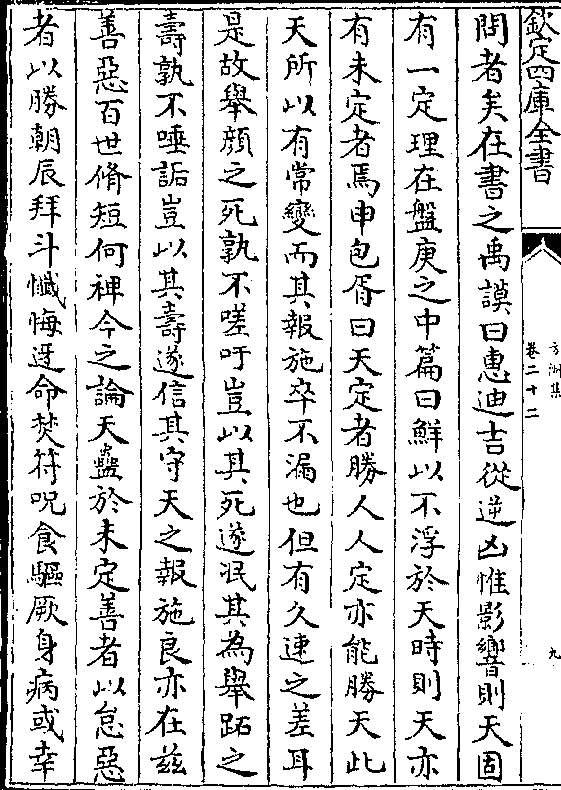 欽定四庫全書
方洲集
卷二十二
九
問者矣在書之禹謨曰惠迪吉從逆凶惟影響則天固
有一定理在盤庚之中篇曰鮮以不浮於天時則天亦
有未定者焉申包胥曰天定者勝人人定亦能勝天此
天所以有常變而其報施卒不漏也但有久速之差耳
是故舉顏之死孰不嗟吁豈以其死遂泯其為舉跖之
壽孰不唾詬豈以其壽遂信其守天之報施良亦在兹
善惡百世脩短何裨今之論天蠱於未定善者以怠惡
者以勝朝辰拜斗懴悔迓命焚符呪食驅厥身病或幸